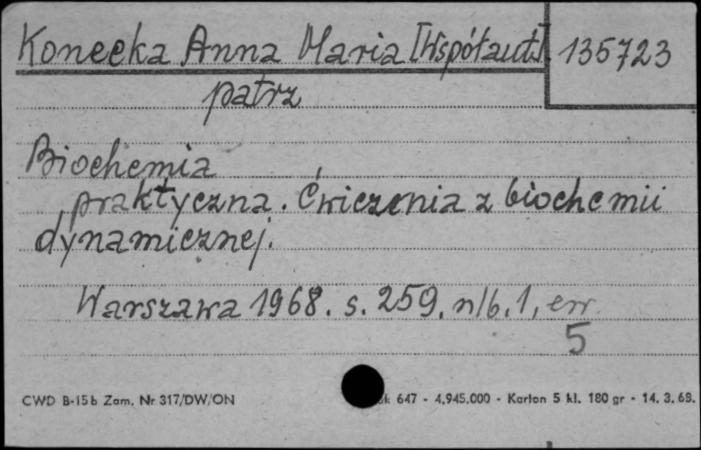 Konecka Anna Maria [Współaut.] 135723
patrz
Biochemia
praktyczna. Ćwiczenia z biochemii
dynamicznej.
Warszawa 1968. s. 259, nlb. 1, err.
5
CWD B-15b Zam. Nr 317/DW/ON 647 - 4.945.000 - Karton 5 kl. 180 gr - 14. 3. 68.